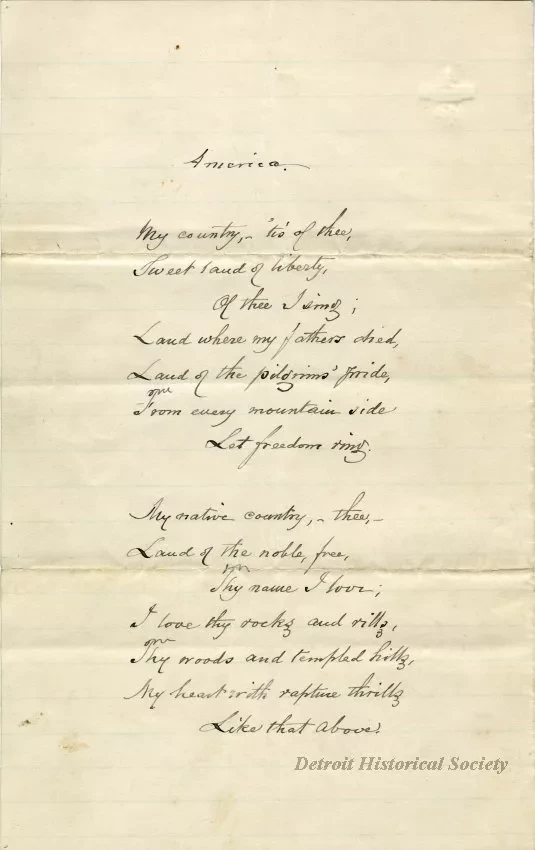 America.
My country, – 'tis of thee,
Sweet land of liberty,
Of thee I sing;
Land where my fathers died,
Land of the pilgrims' pride,
From every mountain side
Let freedom ring.
My native country, – thee, –
Land of the noble, free,
Thy name I love;
I love thy rocks and rills,
Thy woods and templed hills,
My heart with rapture thrills
Like that above.
Detroit Historical Society